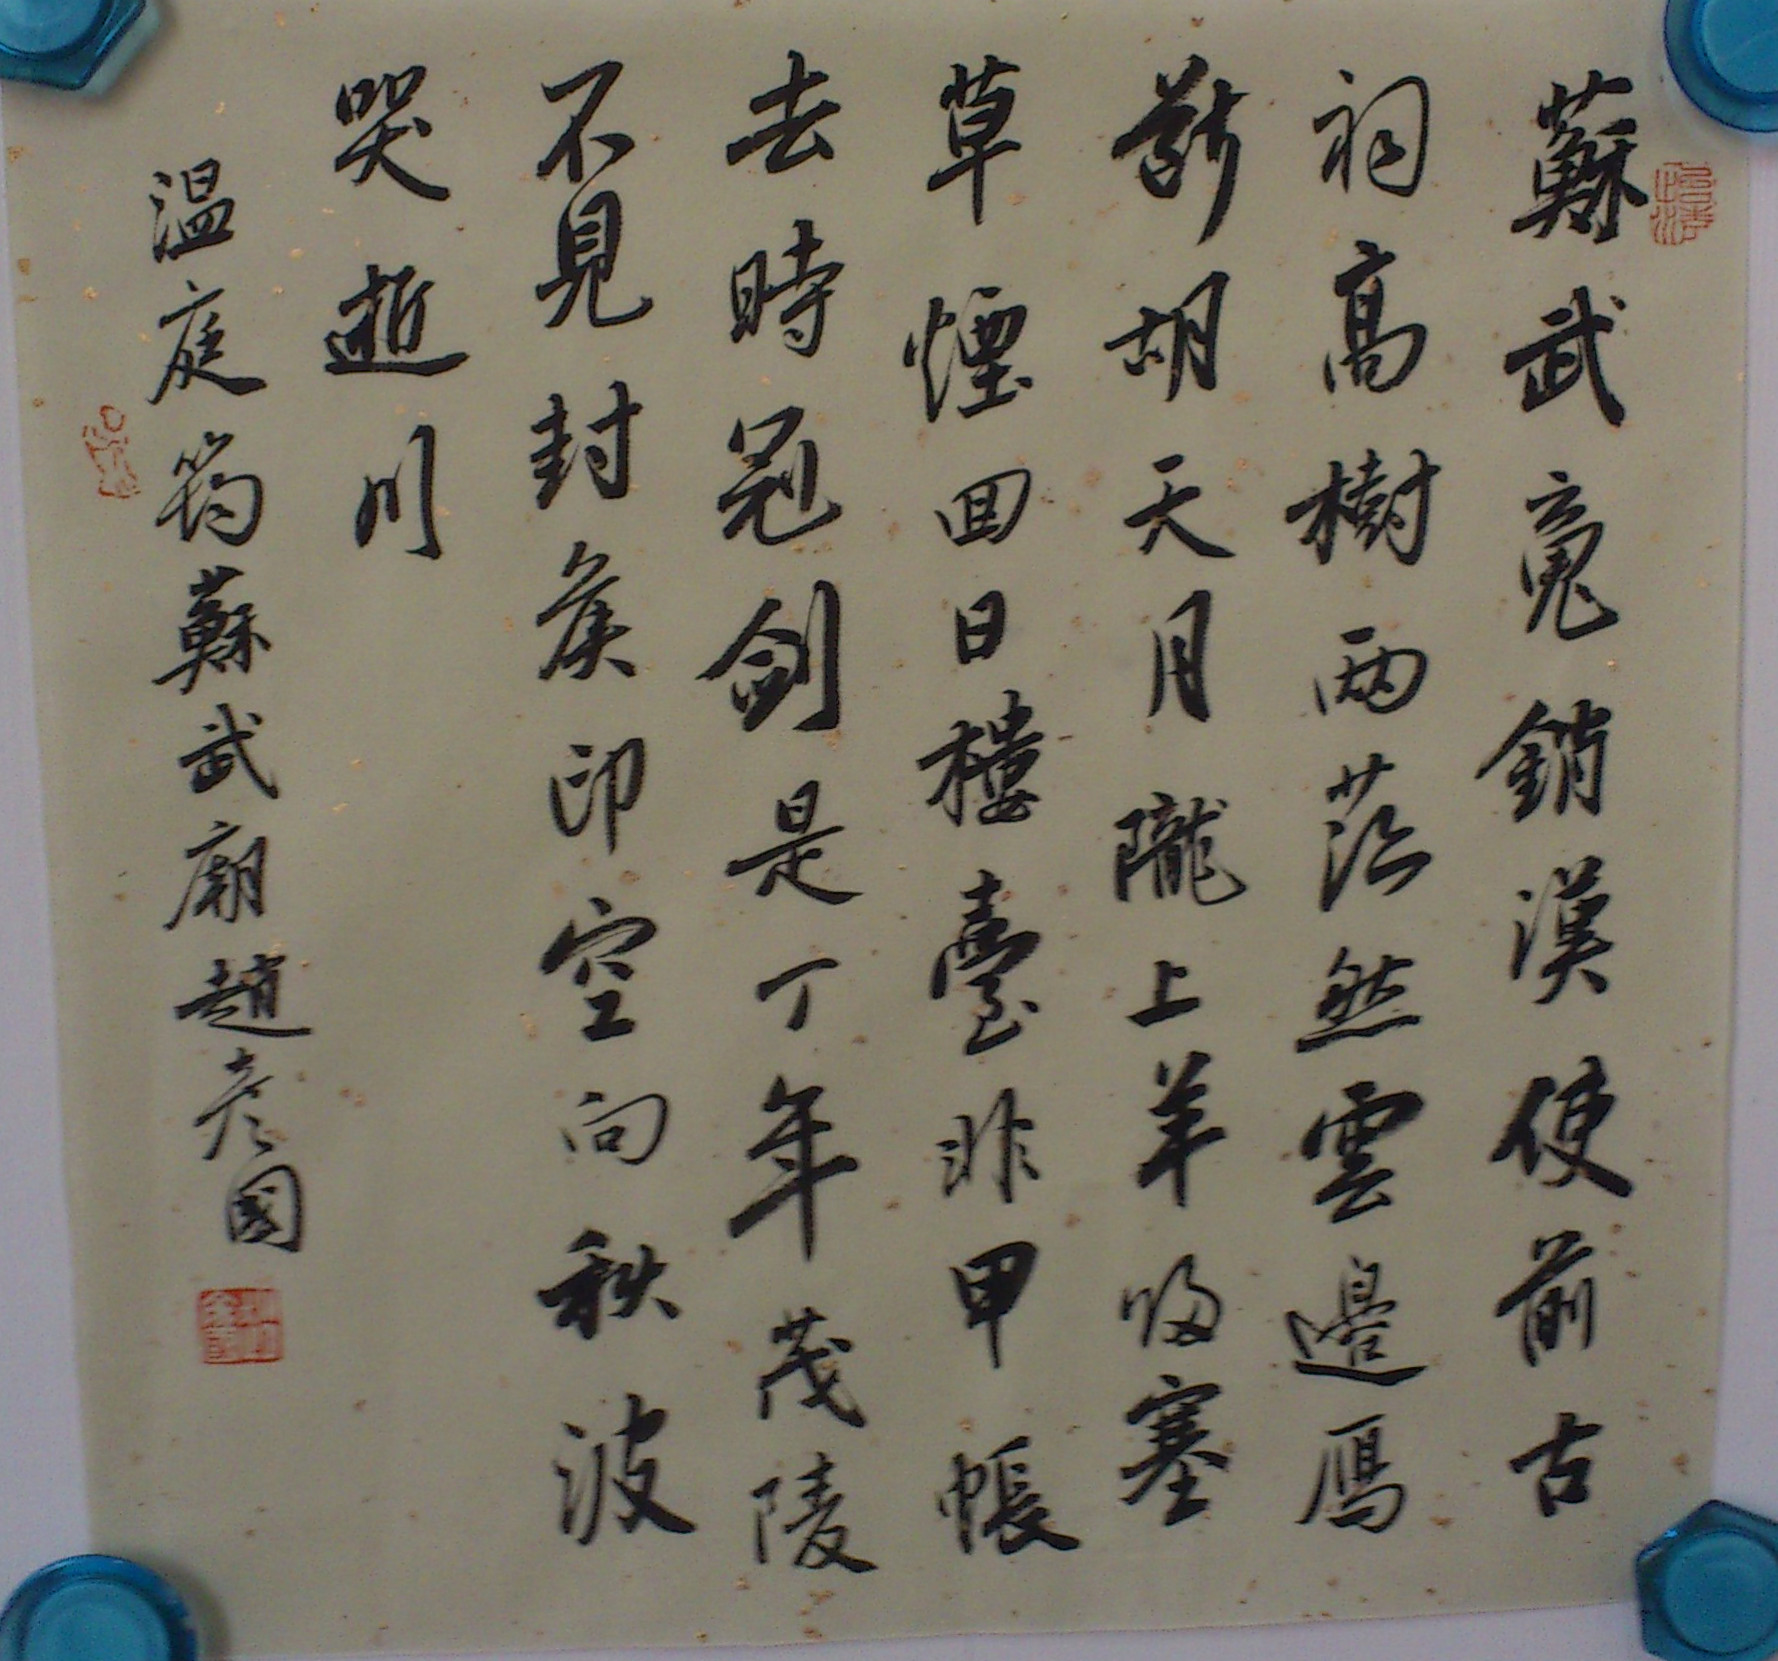 蘇武魂銷漢使前古
祠高樹兩茫然雲邊雁
斷胡天月隴上羊歸塞
草煙回日樓臺非甲帳
去時冠劍是丁年茂陵
不見封侯印空向秋波
哭逝川
温庭筠蘇武廟趙彥國